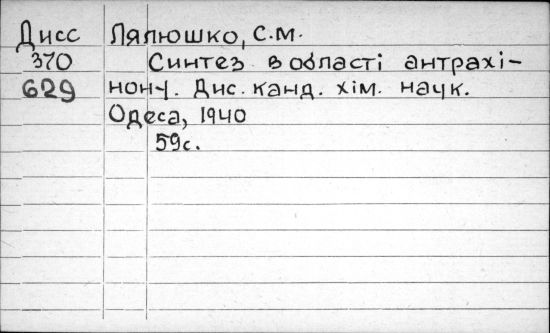 Дисс Лялюшко, С.М.
370 Синтез в області антрахі-
629 нону. Дис. канд. хім. наук.
Одеса, 1940
59с.